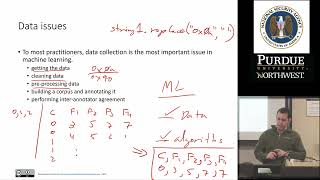 Data issues
string1.replace("0x0A", "")
• To most practitioners, data collection is the most important issue in machine learning.
• getting the data
• cleaning data
0x0a
• pre-processing data
• building a corpus and annotating it
• performing inter-annotator agreement
ML
Data
algorithms
0, 1, 2
C F1 F2 F3 F4
0 3 5 7 7
0 4 5 2 1
1
1
2
C, F1, F2, F3, F4
0, 3, 5, 7, 7
NATIONAL SECURITY AGENCY
UNITED STATES OF AMERICA
PURDUE
UNIVERSITY
NORTHWEST